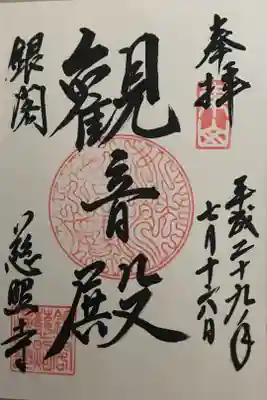 奉拝
平成二十九年
七月十六日
観音殿
銀閣
慈照寺